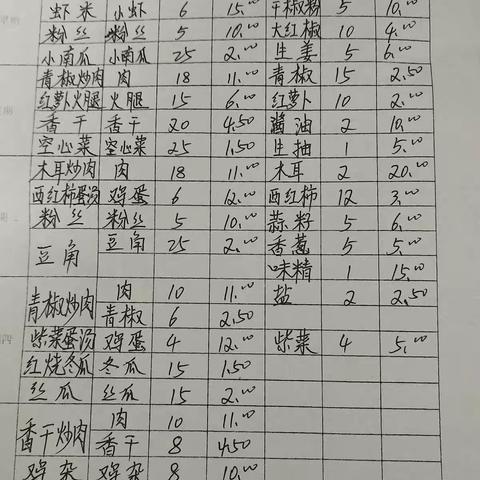 虾米 小虾 6 15.00 干椒粉 5 10.00
粉丝 粉丝 5 10.00 大红椒 10 4.00
小南瓜 小南瓜 25 2.00 生姜 5 6.00
青椒炒肉 肉 18 11.00 青椒 15 2.50
红萝卜火腿 火腿 15 6.00 红萝卜 10 2.00
香干 香干 20 4.50 酱油 2 10.00
空心菜 空心菜 25 1.50 生抽 1 5.00
木耳炒肉 肉 18 11.00 木耳 2 20.00
西红柿蛋汤 鸡蛋 6 12.00 西红柿 12 3.00
粉丝 粉丝 5 10.00 蒜籽 5 6.00
豆角 豆角 25 2.00 香葱 5 5.00
味精 1 15.00
青椒炒肉 肉 10 11.00 盐 2 2.50
青椒 6 2.50
紫菜蛋汤 鸡蛋 4 12.00 紫菜 4 5.00
红烧冬瓜 冬瓜 15 1.50
丝瓜 丝瓜 15 2.00
香干炒肉 肉 10 11.00
香干 8 4.50
鸡杂 鸡杂 8 10.00